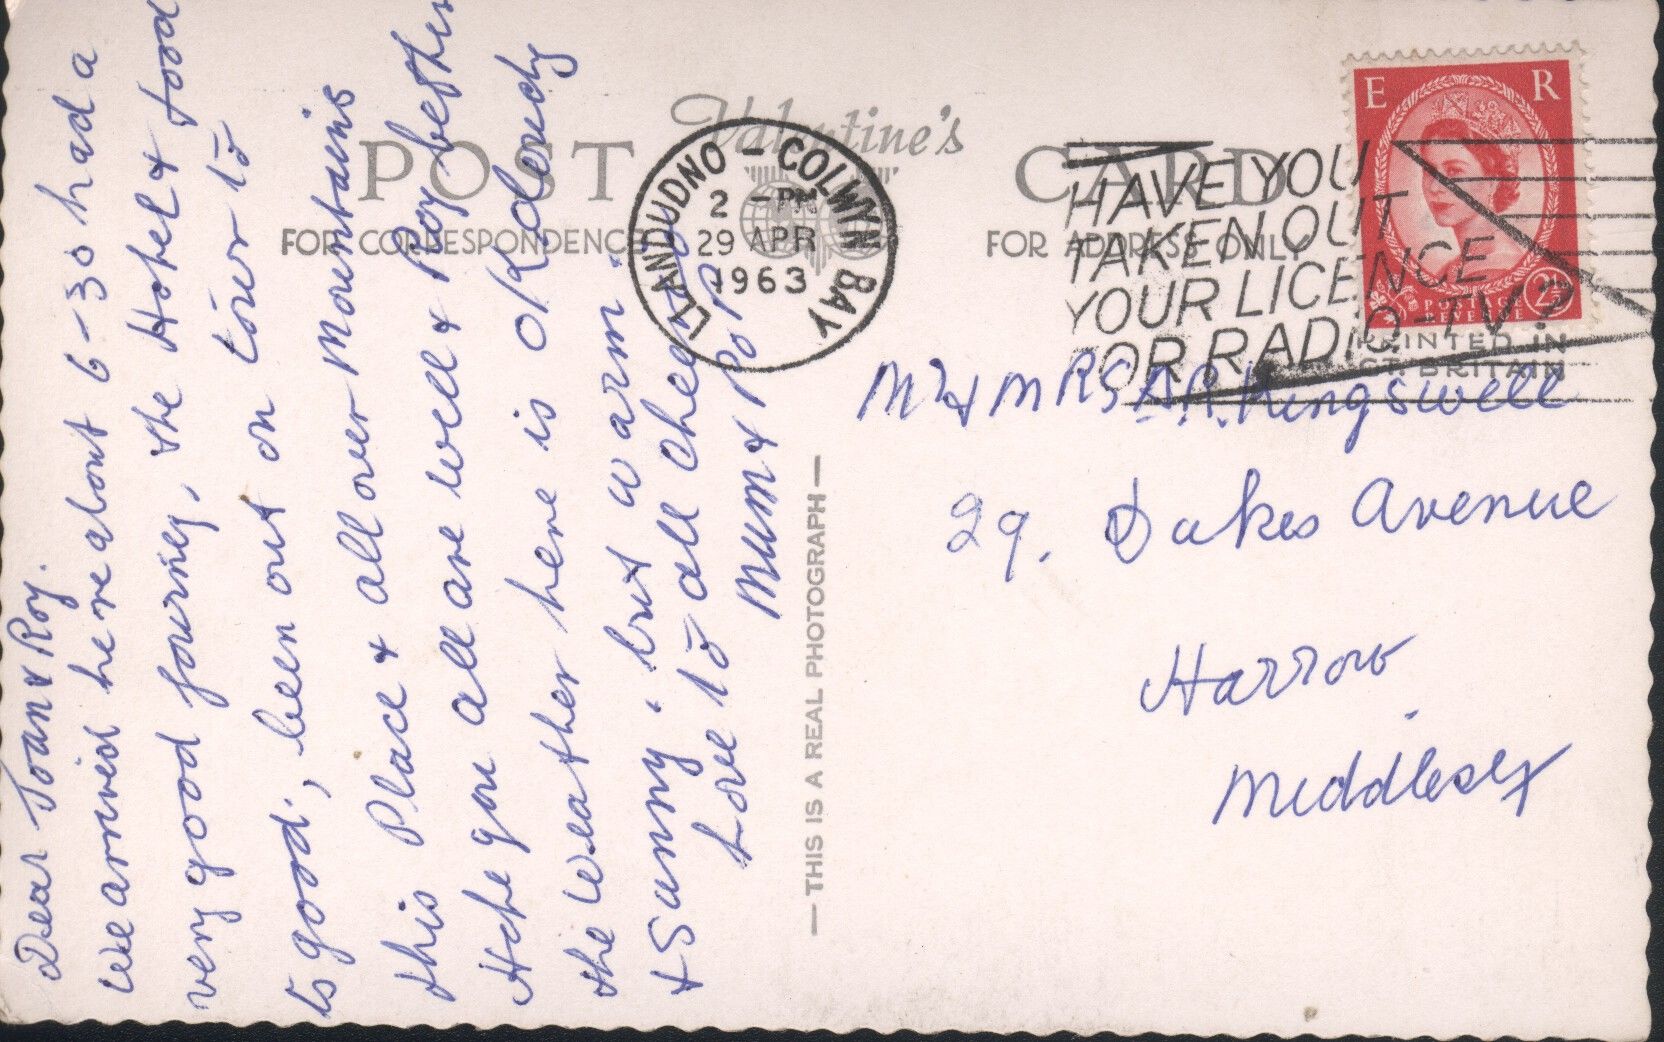 Dear Joan & Roy.
We arrived here about 6-30 had a
very good journey, the Hotel & food
is good, been out on tour to
this Place & all over Mountains
Hope you all are well & Roy better
the Weather here is OK cloudy
& Sunny. but warm.
Love to all cheerio
Mum & Pop
POST CARD
Valentine's
FOR CORRESPONDENCE
FOR ADDRESS ONLY
LLANDUDNO - COLWYN BAY
2 - PM
29 APR
1963
HAVE YOU
TAKEN OUT
YOUR LICENCE
FOR RADIO-TV?
E R
POSTAGE
REVENUE
2½
PRINTED IN
GT. BRITAIN
— THIS IS A REAL PHOTOGRAPH —
Mr & MRS A.R. Kingswell
29. Dukes Avenue
Harrow
Middlesex